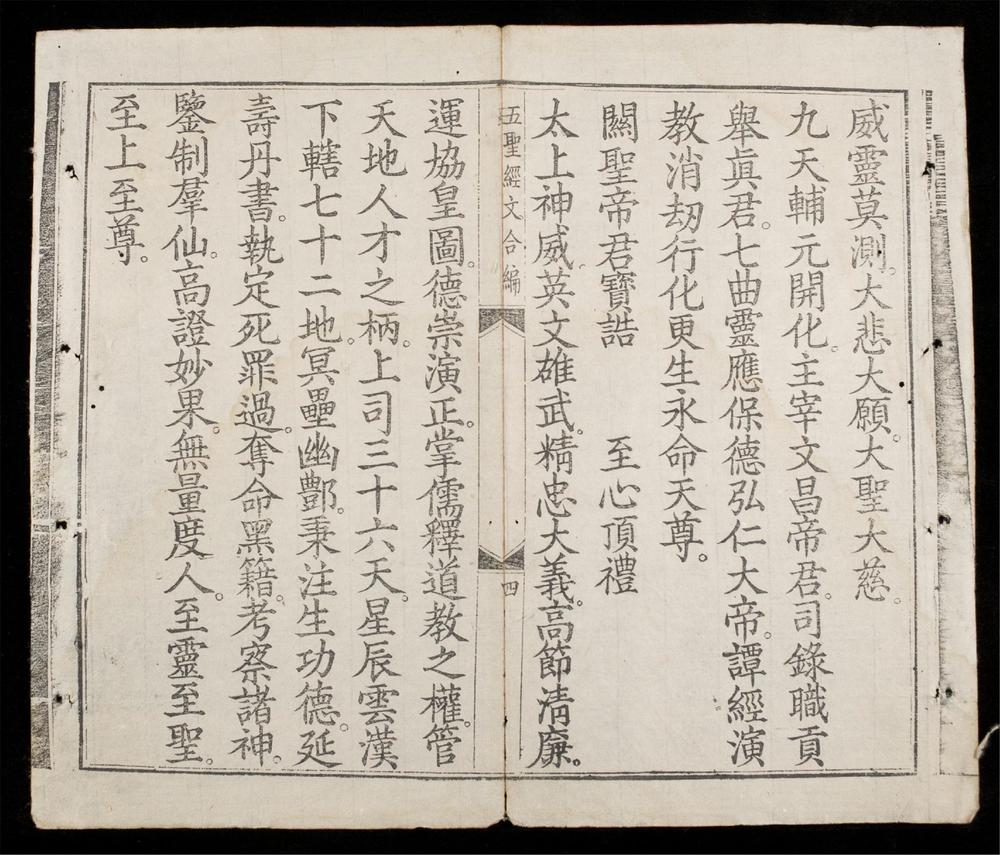 威靈莫測。大悲大願。大聖大慈。
九天輔元開化。主宰文昌帝君。司錄職貢
舉眞君。七曲靈應保德弘仁大帝。譚經演
教消刼行化更生永命天尊。
關聖帝君寶誥　至心頂禮
太上神威。英文雄武。精忠大義。高節清廉。
五聖經文合編　四
運協皇圖。德崇演正。掌儒釋道教之權。管
天地人才之柄。上司三十六天。星辰雲漢
下轄七十二地。冥壘幽酆。秉注生功德。延
壽丹書。執定死罪過。奪命黑籍。考察諸神。
鑒制羣仙。高證妙果。無量度人。至靈至聖。
至上至尊。